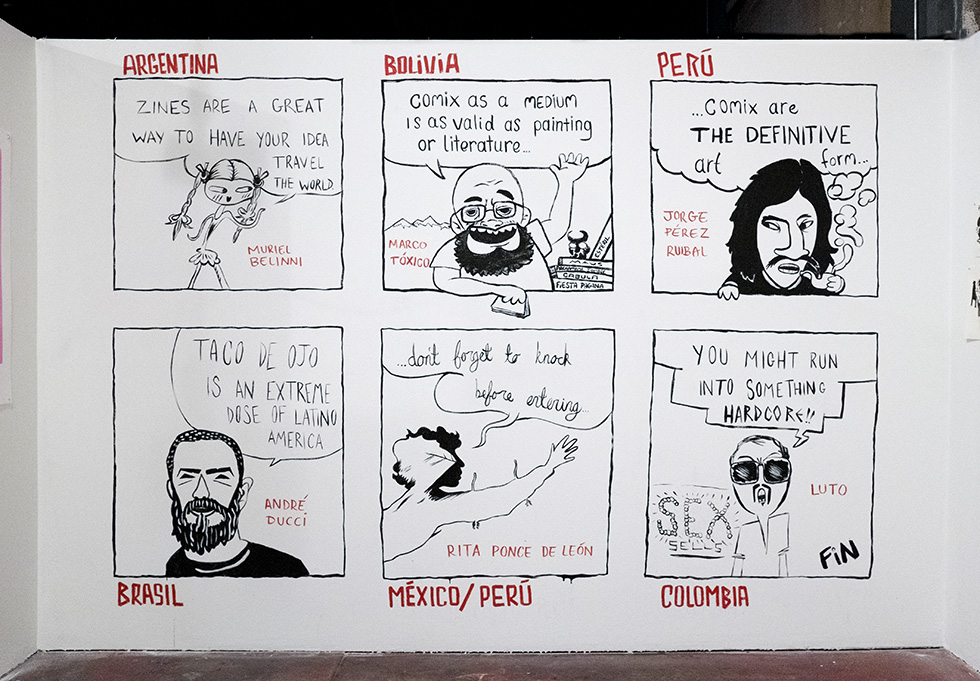 ARGENTINA
ZINES ARE A GREAT
WAY TO HAVE YOUR IDEA
TRAVEL
THE WORLD
MURIEL
BELINNI
BOLIVIA
COMIX AS A MEDIUM
IS AS VALID AS PAINTING
OR LITERATURE...
MARCO
TÓXICO
MAUS
CABULA
FIESTA PAGANA
PERÚ
...COMIX ARE
THE DEFINITIVE
art form...
JORGE
PÉREZ
RUIBAL
TACO DE OJO
IS AN EXTREME
DOSE OF LATINO
AMERICA
ANDRÉ
DUCCI
BRASIL
...don't forget to knock
before entering...
RITA PONCE DE LEÓN
MÉXICO/PERÚ
YOU MIGHT RUN
INTO SOMETHING
HARDCORE!!
LUTO
SEX
SELLS
FIN
COLOMBIA